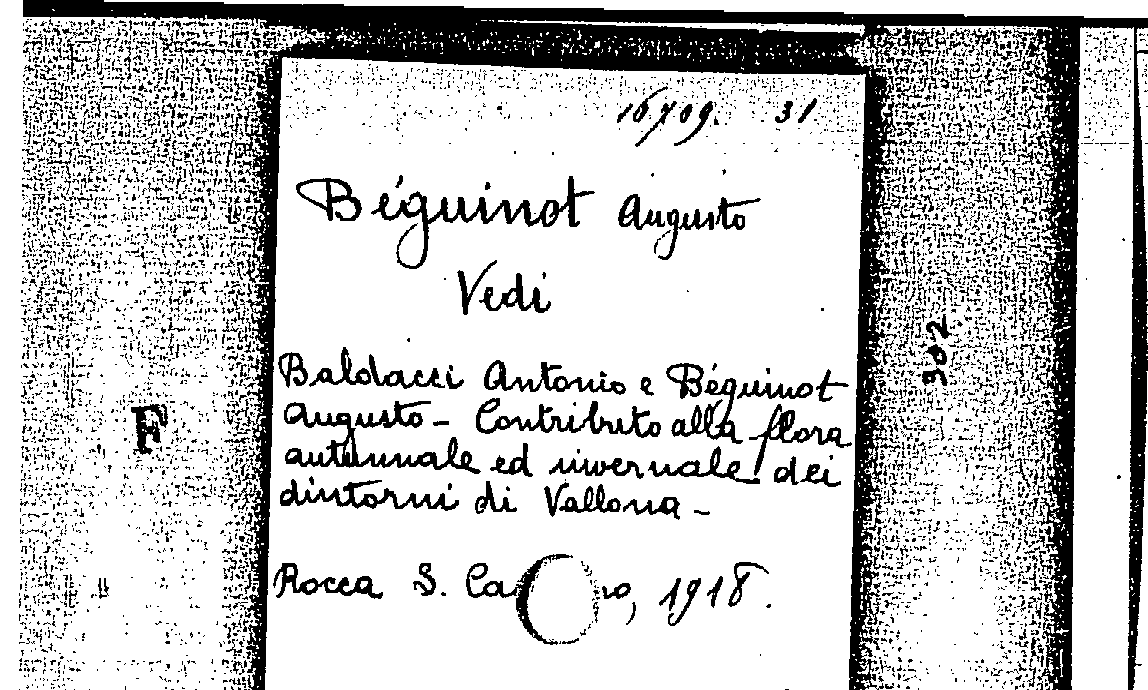 16709. 31
Béguinot Augusto
Vedi
Baldacci Antonio e Béguinot
Augusto - Contributo alla flora
autunnale ed invernale dei
dintorni di Vallona -
Rocca S. Ca no, 1918.
F
302